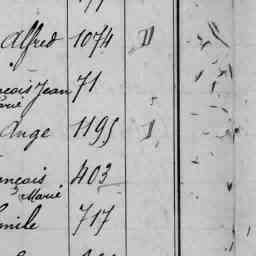 Alfred 1074 II
çois Jean 71
Marie
Ange 1195 I
ançois 403
Marie
mile 717